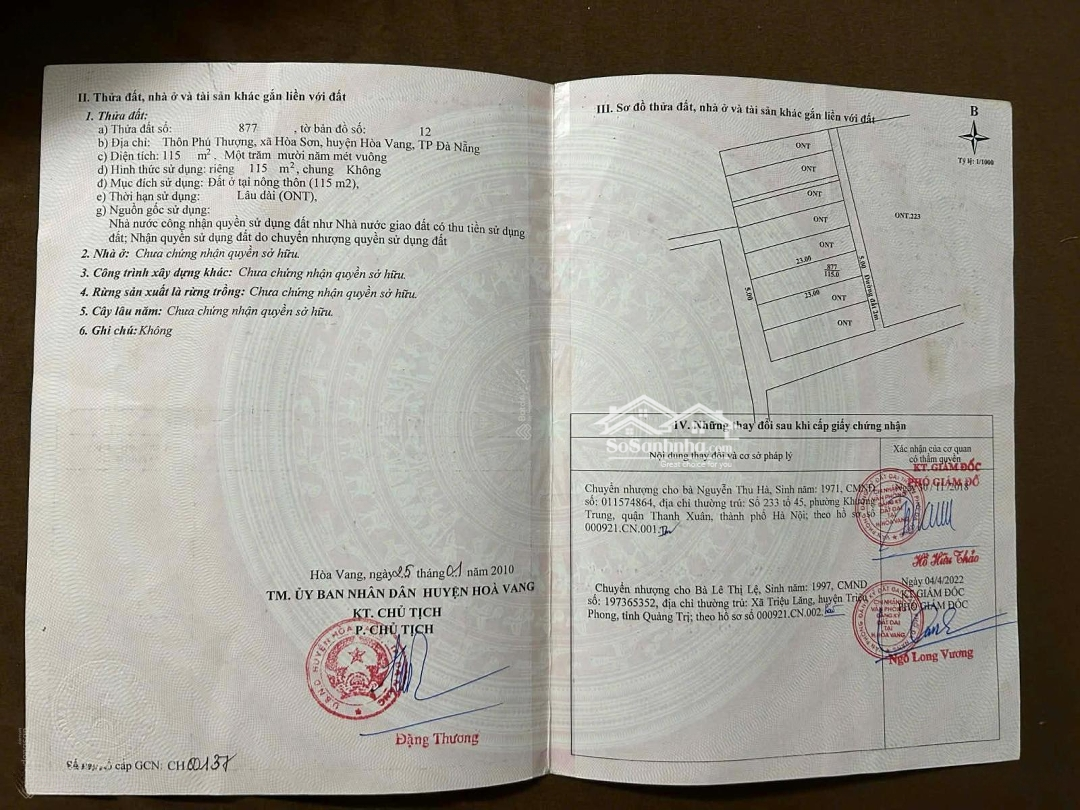 II. Thửa đất, nhà ở và tài sản khác gắn liền với đất
1. Thửa đất:
a) Thửa đất số: 877 , tờ bản đồ số: 12
b) Địa chỉ: Thôn Phú Thượng, xã Hòa Sơn, huyện Hòa Vang, TP Đà Nẵng
c) Diện tích: 115 m². Một trăm mười năm mét vuông
d) Hình thức sử dụng: riêng 115 m², chung Không
đ) Mục đích sử dụng: Đất ở tại nông thôn (115 m2),
e) Thời hạn sử dụng: Lâu dài (ONT),
g) Nguồn gốc sử dụng:
Nhà nước công nhận quyền sử dụng đất như Nhà nước giao đất có thu tiền sử dụng
đất; Nhận quyền sử dụng đất do chuyển nhượng quyền sử dụng đất
2. Nhà ở: Chưa chứng nhận quyền sở hữu.
3. Công trình xây dựng khác: Chưa chứng nhận quyền sở hữu.
4. Rừng sản xuất là rừng trồng: Chưa chứng nhận quyền sở hữu.
5. Cây lâu năm: Chưa chứng nhận quyền sở hữu.
6. Ghi chú: Không
Hòa Vang, ngày 25 tháng 01 năm 2010
TM. ỦY BAN NHÂN DÂN HUYỆN HOÀ VANG
KT. CHỦ TỊCH
P. CHỦ TỊCH
Đặng Thương
cấp GCN: CH 00137
III. Sơ đồ thửa đất, nhà ở và tài sản khác gắn liền với đất
B
Tỷ lệ: 1/1000
ONT
ONT
ONT
ONT
ONT.223
ONT
23.00
877
115.0
5.00
5.00
Đường đất 2m
23.00
ONT
ONT
IV. Những thay đổi sau khi cấp giấy chứng nhận
Nội dung thay đổi và cơ sở pháp lý
Xác nhận của cơ quan
có thẩm quyền
SoSanhnha.com
Great choice for you
KT. GIÁM ĐỐC
PHÓ GIÁM ĐỐ
Chuyển nhượng cho bà Nguyễn Thu Hà, Sinh năm: 1971, CMND
số: 011574864, địa chỉ thường trú: Số 233 tổ 45, phường Khương
Trung, quận Thanh Xuân, thành phố Hà Nội; theo hồ sơ số
000921.CN.001.
Ngày 30/11/2018
Hồ Hữu Thảo
Chuyển nhượng cho Bà Lê Thị Lệ, Sinh năm: 1997, CMND
số: 197365352, địa chỉ thường trú: Xã Triệu Lăng, huyện Triệu
Phong, tỉnh Quảng Trị; theo hồ sơ số 000921.CN.002.
Ngày 04/4/2022
KT.GIÁM ĐỐC
PHÓ GIÁM ĐỐC
Ngô Long Vương